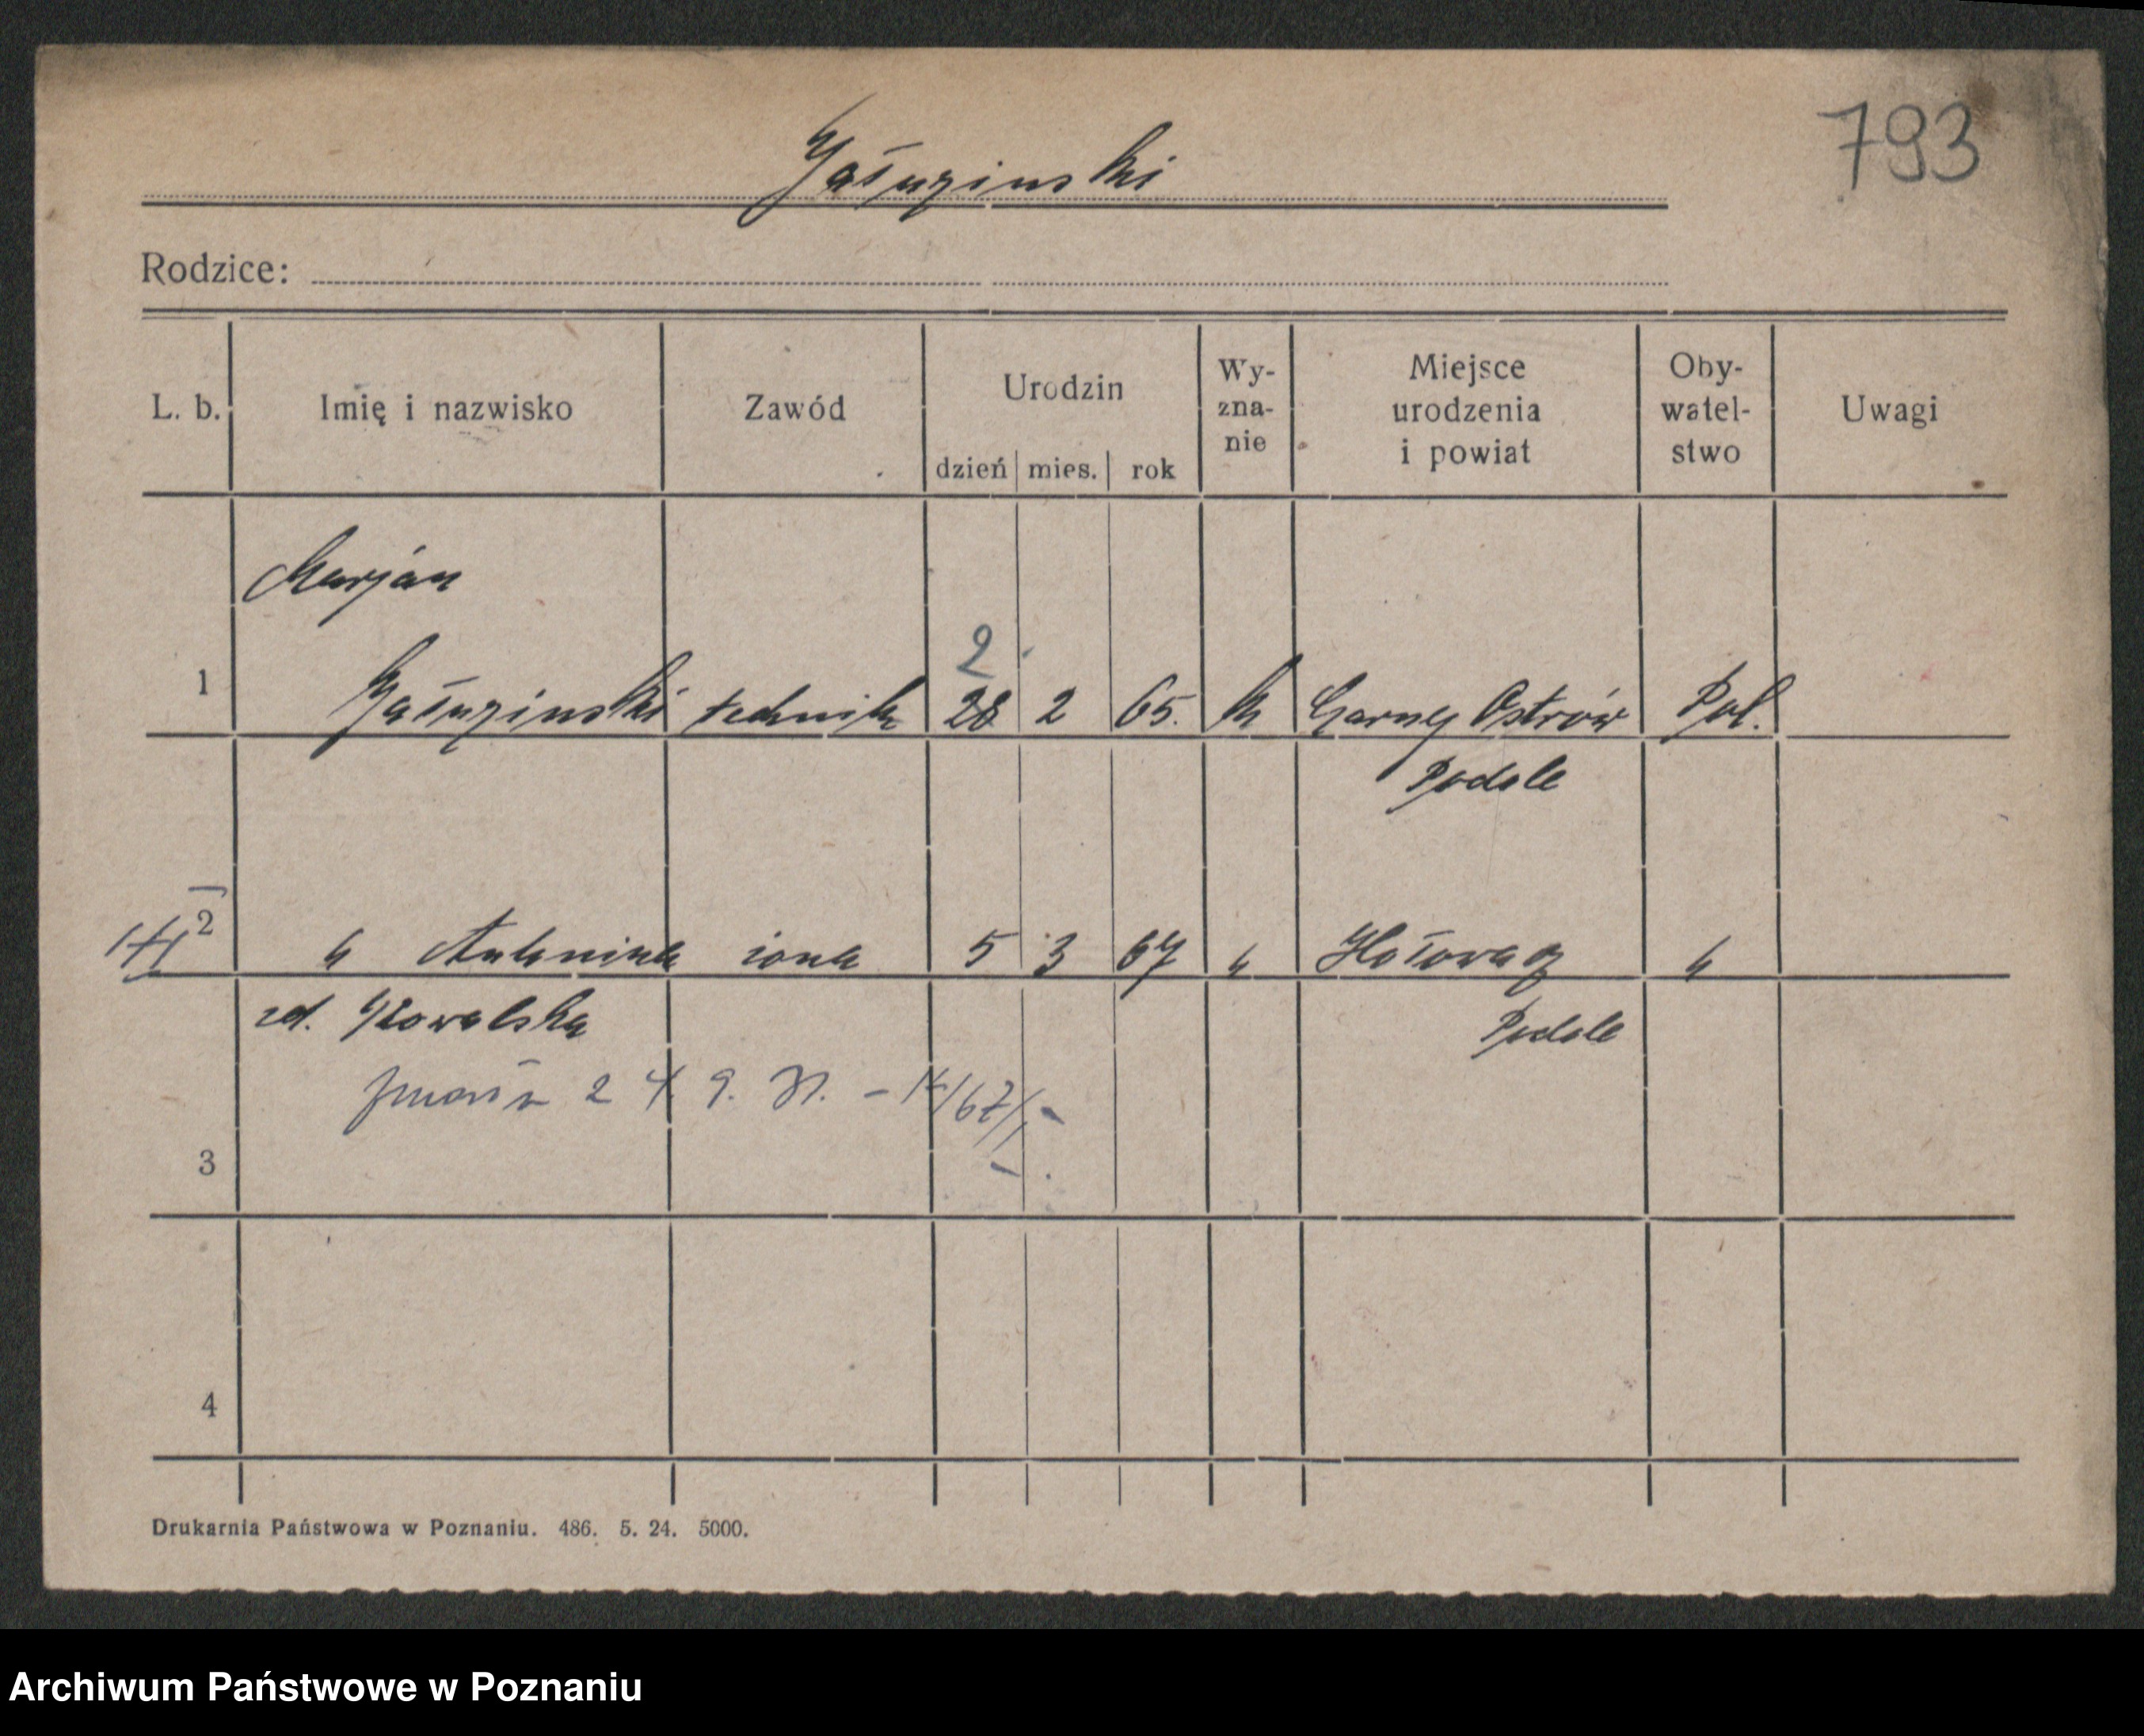 793
Gałuzinski
Rodzice:
L. b. Imię i nazwisko Zawód Urodzin dzień mies. rok Wy-zna-nie Miejsce urodzenia i powiat Oby-watel-stwo Uwagi
Marjan
2
1 Gałuzinski technik 28 2 65. k Czarny Ostrów Pol.
Podole
2 " Antonina żona 5 3 67 " Hołowacz "
zd. Kowalska Podole
zmarła 24. 9. 31.
3
4
Drukarnia Państwowa w Poznaniu. 486. 5. 24. 5000.
Archiwum Państwowe w Poznaniu